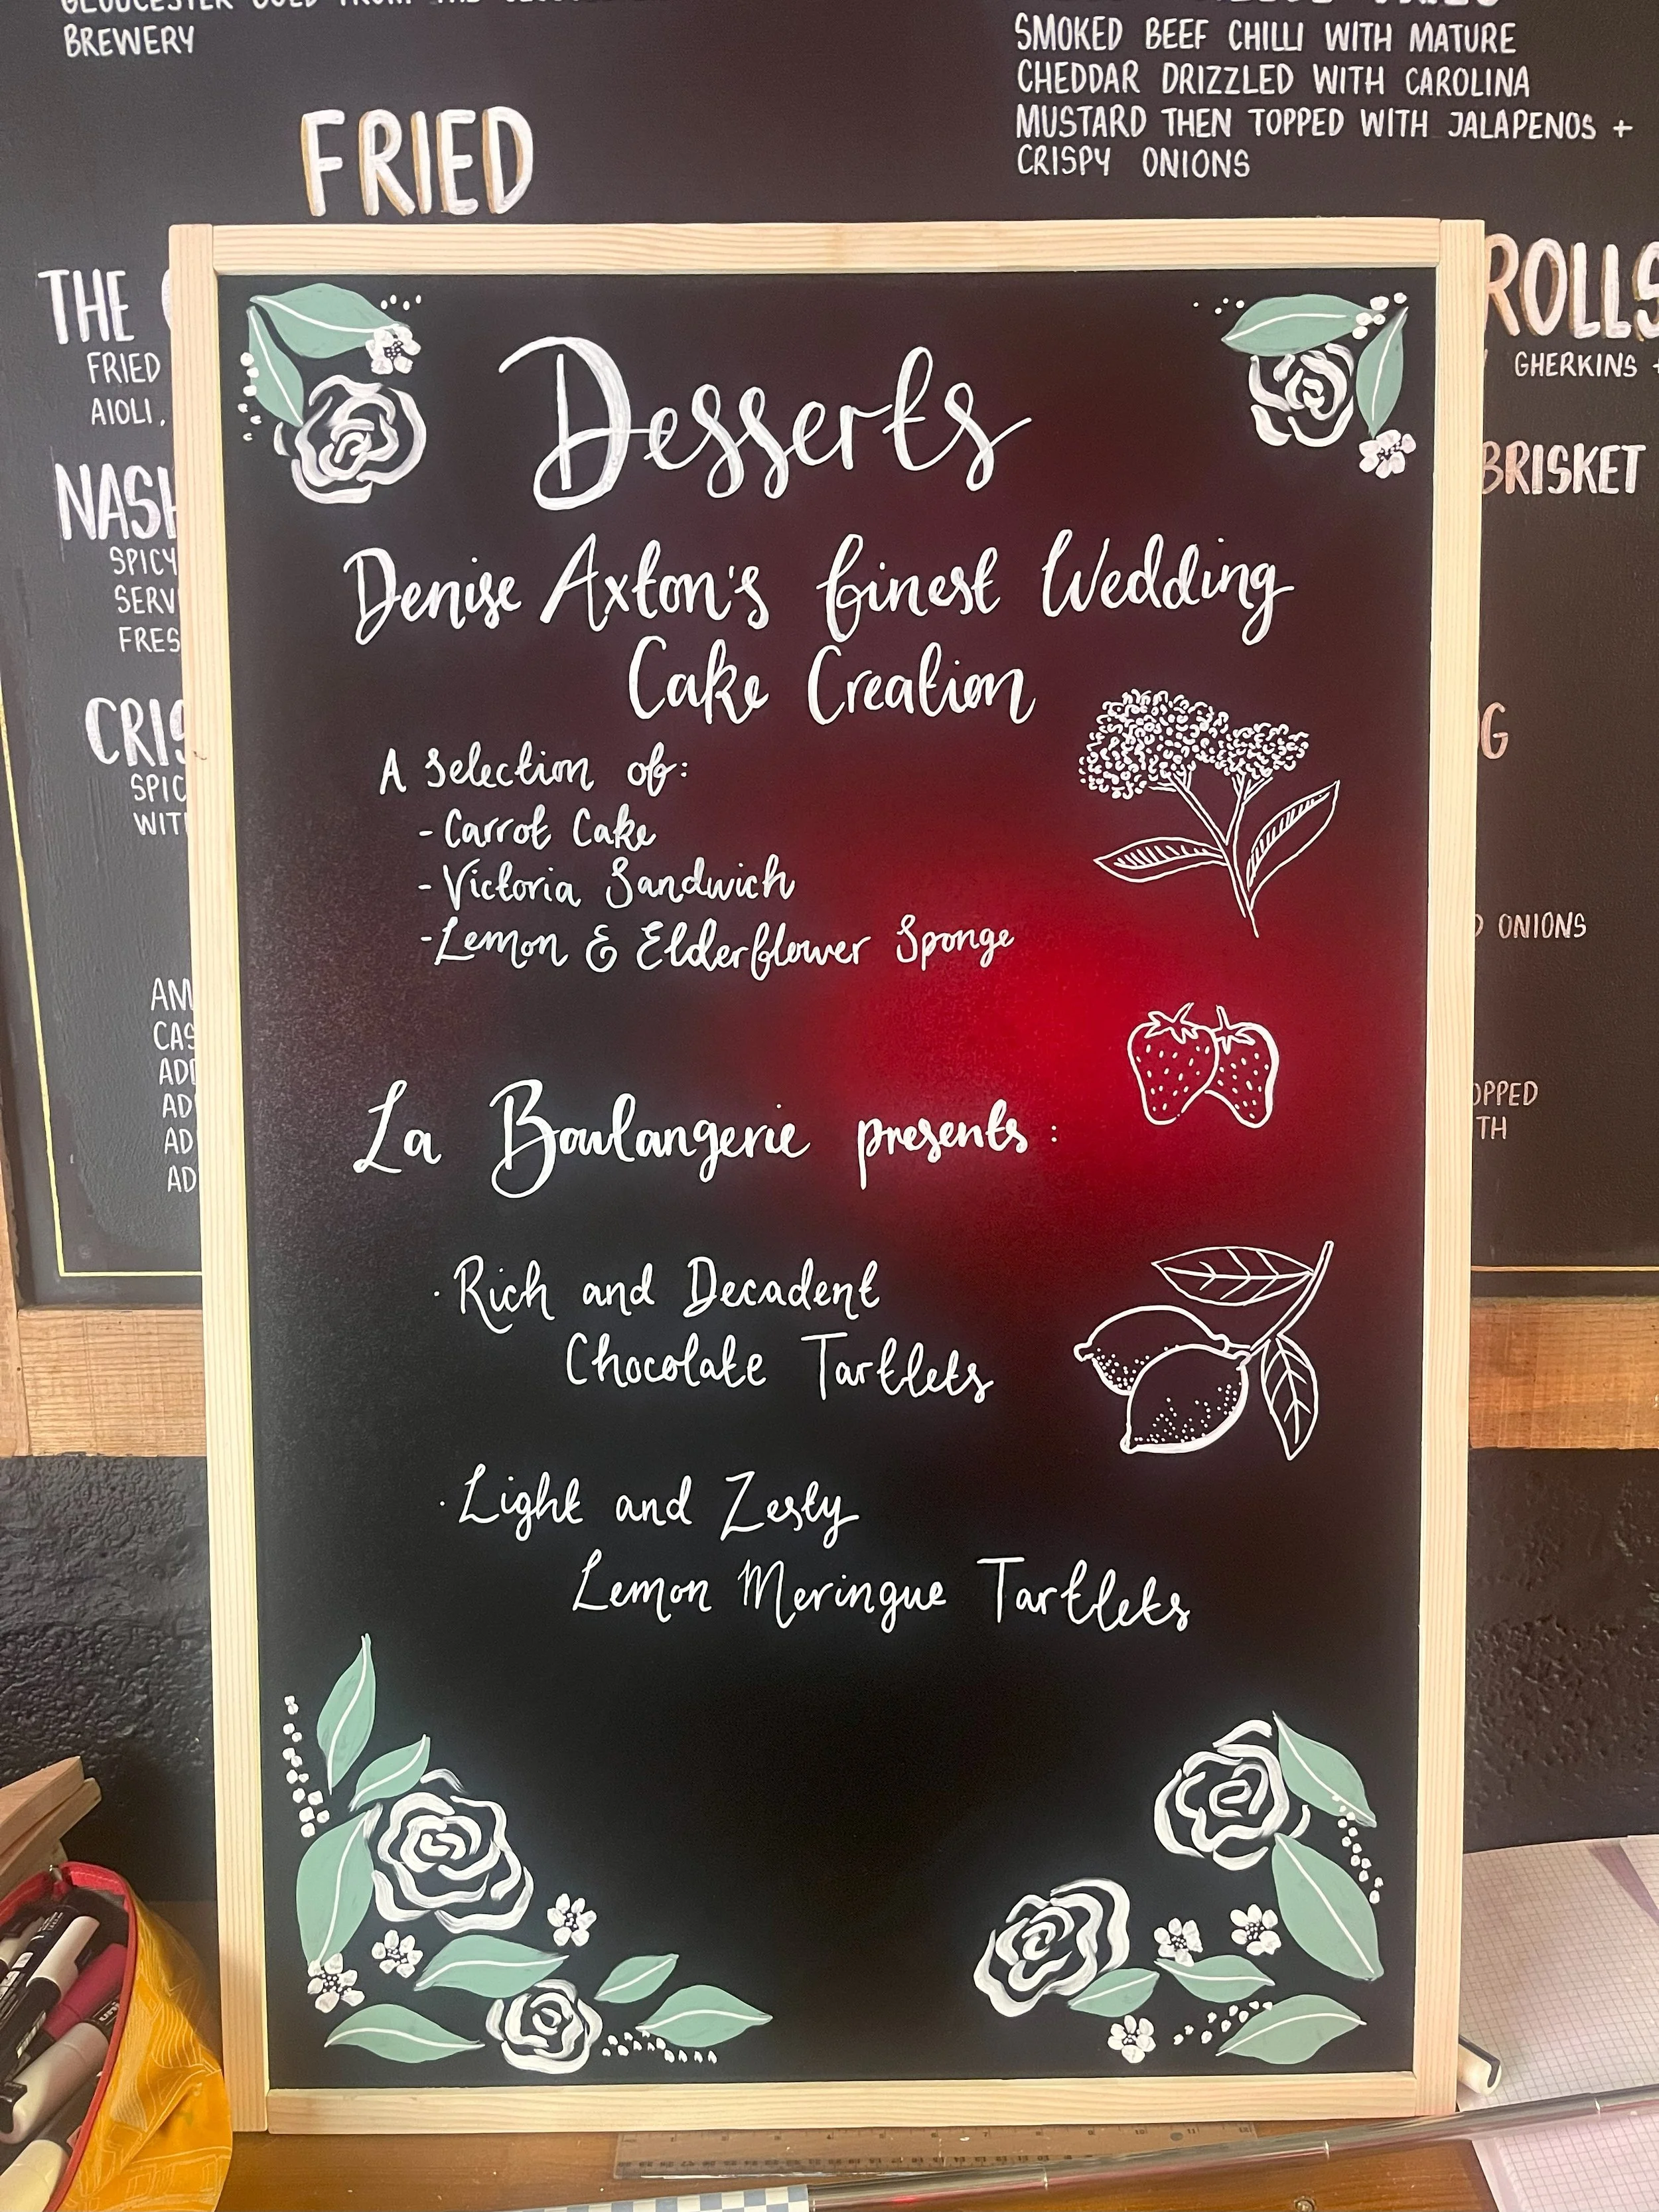 BREWERY
FRIED
SMOKED BEEF CHILLI WITH MATURE
CHEDDAR DRIZZLED WITH CAROLINA
MUSTARD THEN TOPPED WITH JALAPENOS +
CRISPY ONIONS
THE
FRIED
AIOLI,
SPICY
ROLLS
GHERKINS +
BRISKET
ONIONS
Desserts
Denise Axton's finest Wedding
Cake Creation
A selection of:
- Carrot Cake
- Victoria Sandwich
- Lemon & Elderflower Sponge
La Boulangerie presents:
· Rich and Decadent
Chocolate Tartlets
· Light and Zesty
Lemon Meringue Tartlets